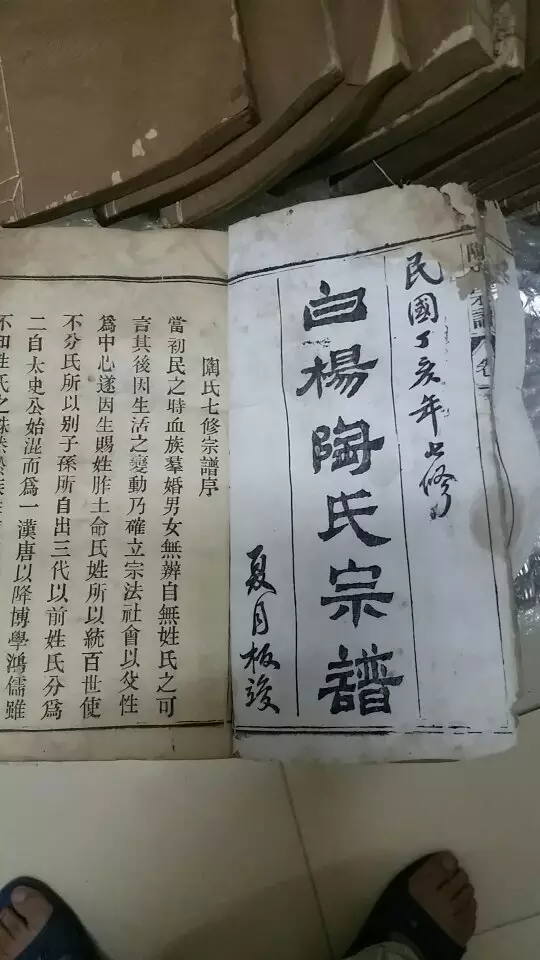 宗譜 卷
民國丁亥年七修
白楊陶氏宗譜
夏月板竣
陶氏七修宗譜序
當初民之時血族羣婚男女無辨自無姓氏之可
言其後因生活之變動乃確立宗法社會以父性
爲中心遂因生賜姓胙土命氏姓所以統百世使
不分氏所以別子孫所自出三代以前姓氏分爲
二自太史公始混而爲一漢唐以降博學鴻儒雖
不知姓氏之